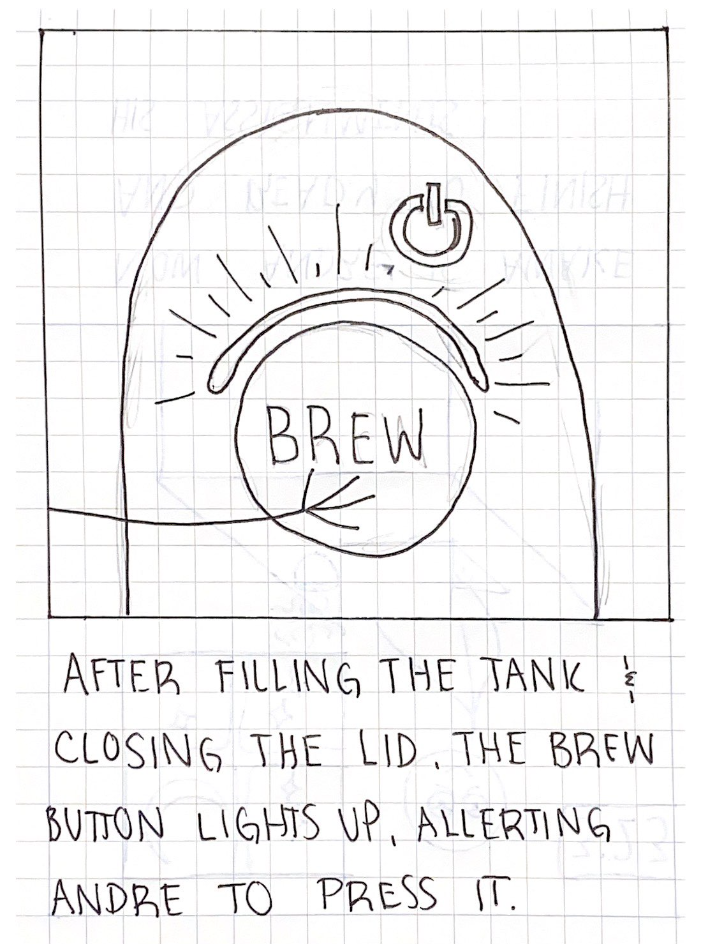 BREW
AFTER FILLING THE TANK &
CLOSING THE LID, THE BREW
BUTTON LIGHTS UP, ALLERTING
ANDRE TO PRESS IT.